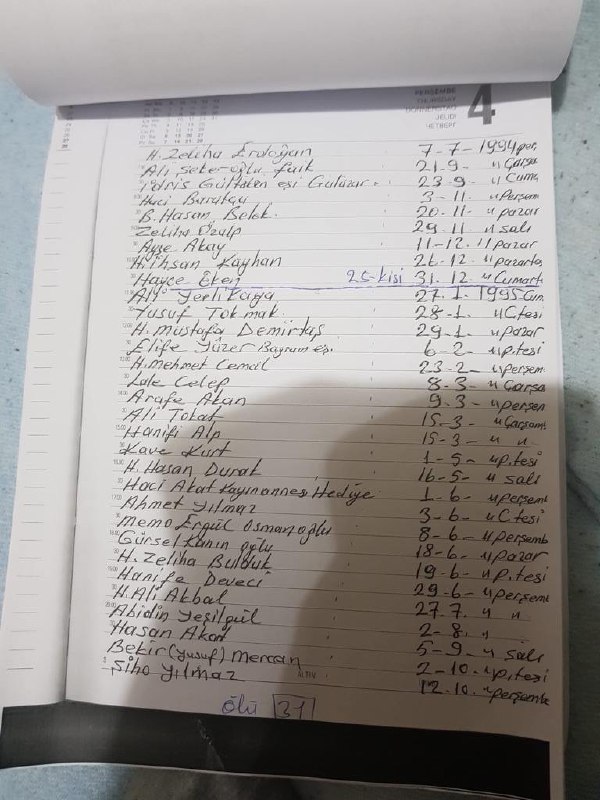 PERŞEMBE
THURSDAY
DONNERSTAG
JEUDI
ЧЕТВЕРГ
4
H. Zeliha Erdoğan 7-7-1994 per.
Ali Şekeroğlu fuit 21-9- " Çarşa
İdris Gültaken eşi Gülüzar. 23-9 " Cuma
Haci Baratçı 3-11. " Perşem
B. Hasan Belek. 20-11- " pazar
Zeliha Özalp 29-11 " salı
Ayşe Akay 11-12. " pazar
H. İhsan Kayhan 26-12 " pazartes
Hayce Eken 25-kişi 31.12. " Cumarti
Ali Yerlikaya 27.1.1995 Cum.
Yusuf Tokmak. 28-1. " C.tesi
H. mustafa Demirtaş 29-1. " pazar
Elife Yüzer Bayram eşi 6-2- " p.tesi
H. mehmet Cemil 23-2- " perşem
Lale Celep 8-3- " Çarşa
Arafe Akan 9-3- " perşem
Ali Tokat 15-3- " Çarşamb
Hanifi Alp 15-3- " "
Kave Kurt 1-5- " p.tesi
H. Hasan Durak 16-5- " salı
Haci Akat Kayınannesi Hediye 1-6- " perşemb
Ahmet Yılmaz 3-6- " C.tesi
Memo Ergül osmanoğlu 8-6- " perşemb
Gürsel Kanın oğlu 18-6- " pazar
H. Zeliha Bulduk 19-6- " p.tesi
Hanife Deveci 29-6- " perşemb
H. Ali Akbal 27.7. " "
Abidin Yeşilgül 2-8. "
Hasan Akan 5-9- " salı
Bekir (yusuf) Mercan 2-10. " p.tesi
Şiho Yılmaz 12.10. " perşembe
Ölü 31